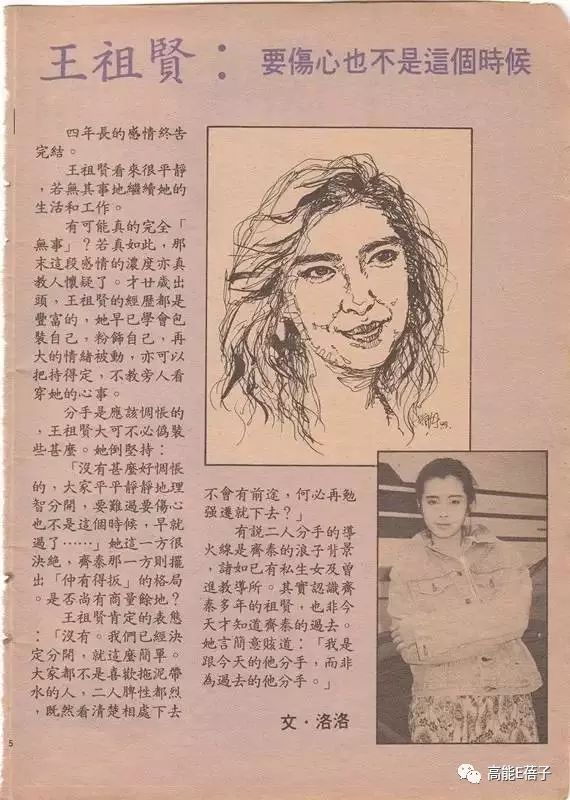 王祖賢：要傷心也不是這個時候
四年長的感情終告
完結。
王祖賢看來很平靜
，若無其事地繼續她的
生活和工作。
有可能真的完全「
無事」？若真如此，那
末這段感情的濃度亦真
教人懷疑了。才廿歲出
頭，王祖賢的經歷都是
豐富的，她早已學會包
裝自己，粉飾自己，再
大的情緒被動，亦可以
把持得定，不教旁人看
穿她的心事。
分手是應該惆悵的
，王祖賢大可不必偽裝
些甚麼。她倒堅持：
「沒有甚麼好惆悵
的，大家平平靜靜地理
智分開，要難過要傷心
也不是這個時候，早就
過了……」她這一方很
決絕，齊泰那一方則擺
出「仲有得扳」的格局
。是否尚有商量餘地？
王祖賢肯定的表態
：「沒有。我們已經決
定分開，就這麼簡單。
大家都不是喜歡拖泥帶
水的人，二人脾性都烈
，既然看清楚相處下去
不會有前途，何必再勉
强遷就下去？」
有說二人分手的導
火線是齊泰的浪子背景
，諸如已有私生女及曾
進教導所。其實認識齊
泰多年的祖賢，也非今
天才知道齊泰的過去。
她言簡意賅道：「我是
跟今天的他分手，而非
為過去的他分手。」
文·洛洛
5
高能E蓓子